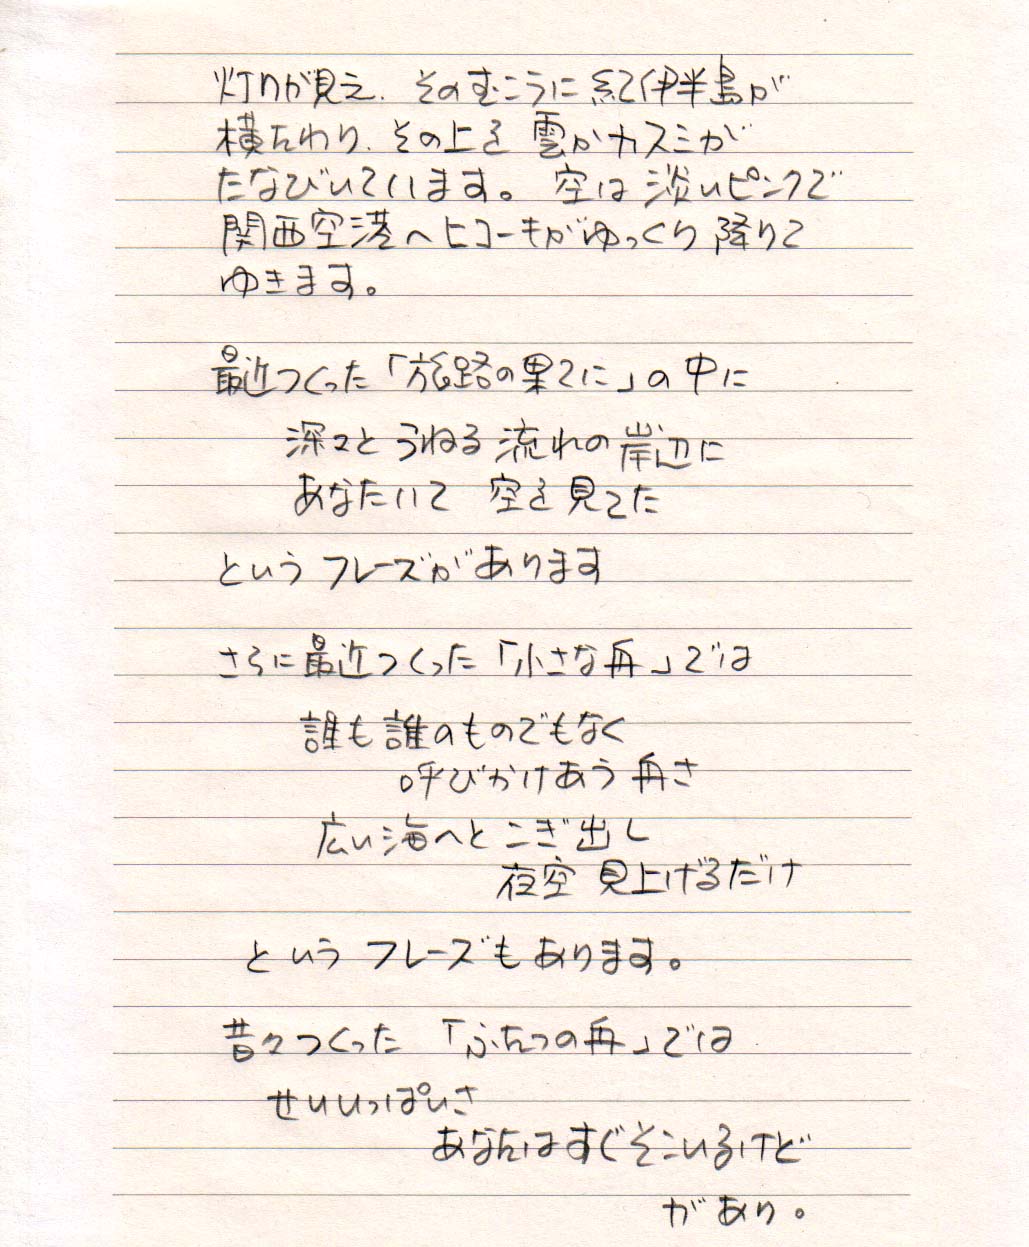 灯りが見え、そのむこうに紀伊半島が
横たわり、その上を雲かカスミが
たなびいています。空は淡いピンクで
関西空港へヒコーキがゆっくり降りて
ゆきます。
最近つくった「旅路の果てに」の中に
深々とうねる流れの岸辺に
あなたいて 空を見てた
というフレーズがあります
さらに最近つくった「小さな舟」では
誰も誰のものでもなく
呼びかけあう舟さ
広い海へとこぎ出し
夜空見上げるだけ
というフレーズもあります。
昔々つくった「ふたつの舟」では
せいいっぱいさ
あなたはすぐそこいるけど
があり。